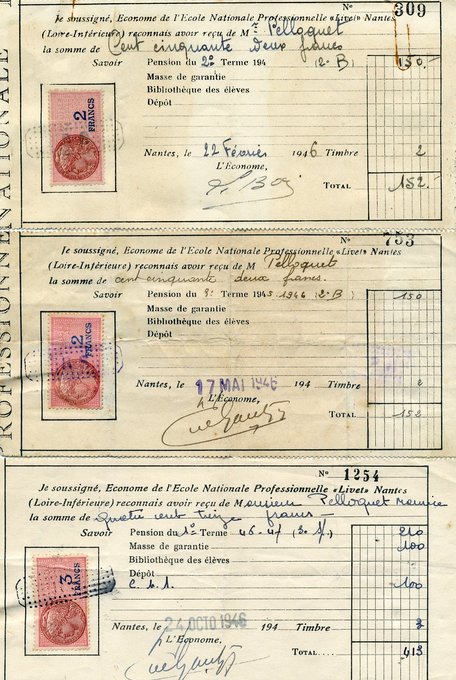 PROFESSIONNELLE NATIONALE
Nº 309
Je soussigné, Econome de l'Ecole Nationale Professionnelle «Livet» Nantes
(Loire-Inférieure) reconnais avoir reçu de Mr Pelloquet
la somme de Cent cinquante deux francs
Savoir Pension du 2e Terme 194 (2e B) 150.-
Masse de garantie
Bibliothèque des élèves
Dépôt
2 FRANCS
Nantes, le 22 Février 1946 Timbre 2
L'Économe,
TOTAL 152.-
Nº 753
Je soussigné, Econome de l'Ecole Nationale Professionnelle «Livet» Nantes
(Loire-Inférieure) reconnais avoir reçu de M Pelloquet
la somme de cent cinquante deux francs.
Savoir Pension du 3e Terme 1945-1946 (2e B) 150
Masse de garantie
Bibliothèque des élèves
Dépôt
2 FRANCS
Nantes, le 17 MAI 1946 194 Timbre 2
L'Économe,
TOTAL 152
Nº 1254
Je soussigné, Econome de l'Ecole Nationale Professionnelle «Livet» Nantes
(Loire-Inférieure) reconnais avoir reçu de Monsieur Pelloquet Maurice
la somme de quatre cent treize francs
Savoir Pension du 1er Terme 46-47 210
Masse de garantie 100
Bibliothèque des élèves
Dépôt
100
3 FRANCS
Nantes, le 24 OCTO 1946 194 Timbre 3
L'Économe,
TOTAL 413